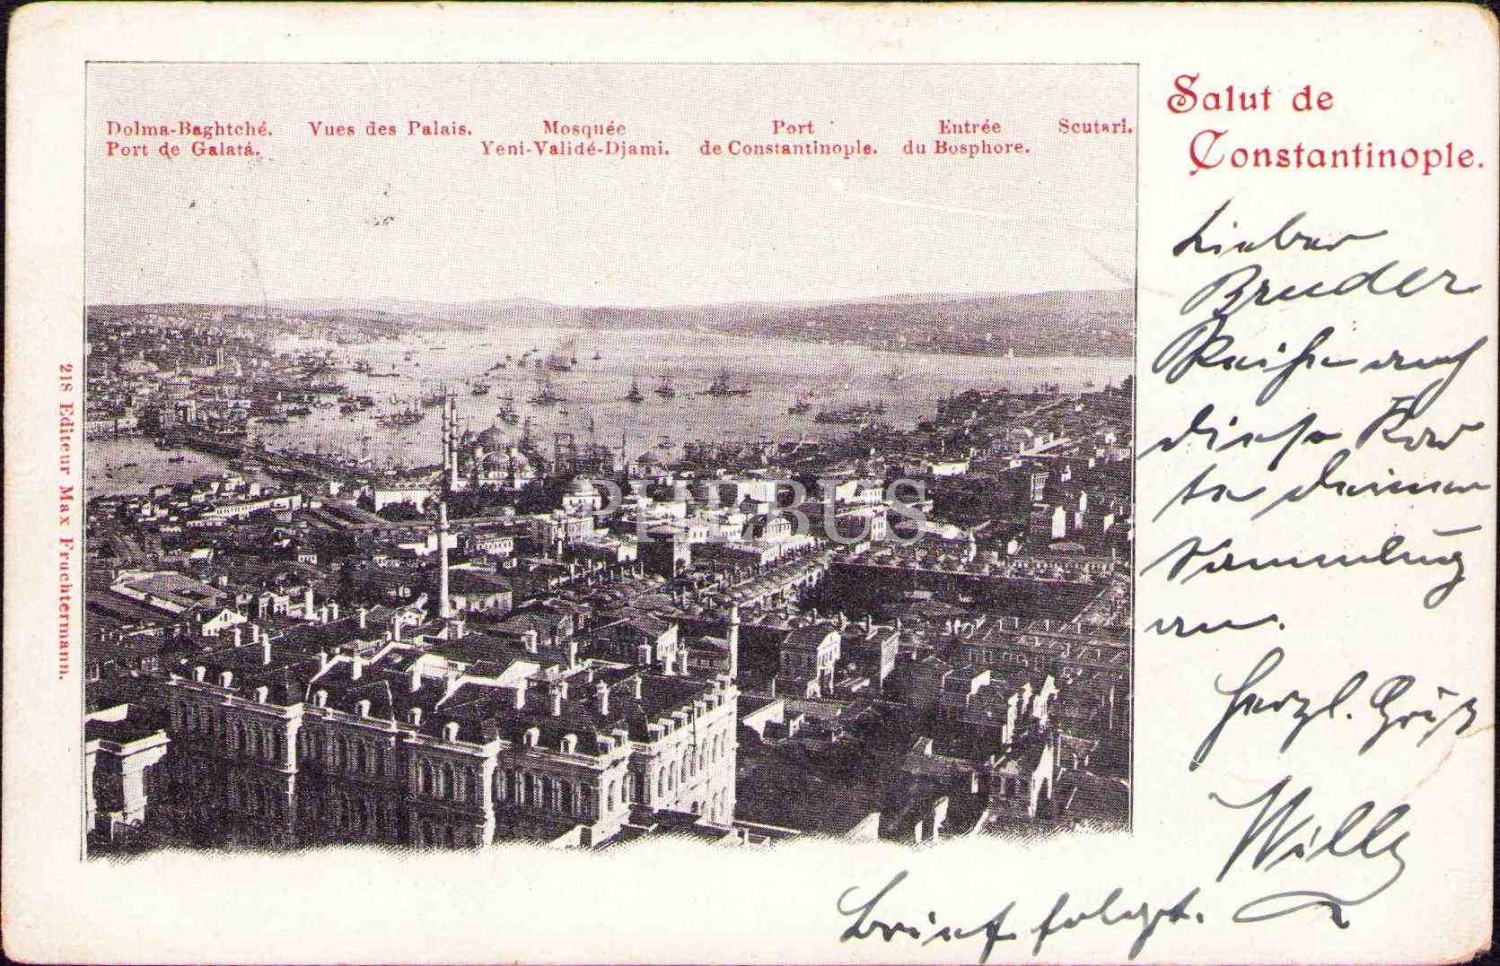 Salut de
Constantinople.
Dolma-Baghtché.
Port de Galata.
Vues des Palais.
Mosquée
Yeni-Validé-Djami.
Port
de Constantinople.
Entrée
du Bosphore.
Scutari.
218 Editeur Max Fruchtermann.
PHEBUS
Lieber
Bruder
auch
diese Kar
te Deiner
Sammlung
an.
Herzl. Grüß
Willy
Brief folgt.